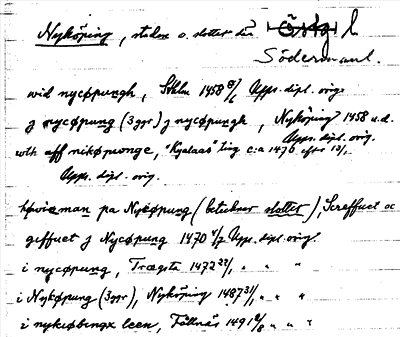 Nyköping, staden o. slottet där Östg l
Södermanl.
wid nycøpungh, Sthlm 1458 8/6 Upps. dipl. orig.
j nycøpung (3 ggr) j nycøpungh, Nyköping 1458 u.d.
Upps. dipl. orig.
wth aff nikøpwnge, "Kyalaas" ting c:a 1470 efter 13/1
Upps. dipl. orig.
høvisman pa Nycøpung (betecknar slottet), Screffuet oc
giffuet j Nycøpung 1470 4/7 Upps. dipl. orig.
i nycøpung, Træsta 1472 22/1 " " "
i Nykøpung (3 ggr), Nyköping 1487 31/1 " " "
i nykiøbingx leen, Fållnäs 1491 9/8 " " "